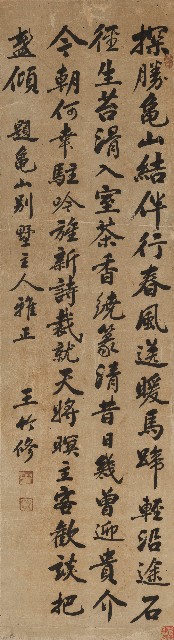 探勝龜山結伴行春風送暖馬蹄輕沿途石
徑生苔滑入室茶香繞篆清昔日幾曾迎貴介
今朝何幸駐吟旌新詩裁就天將暝主客歡談把
盞傾
題龜山別墅主人雅正
王竹修